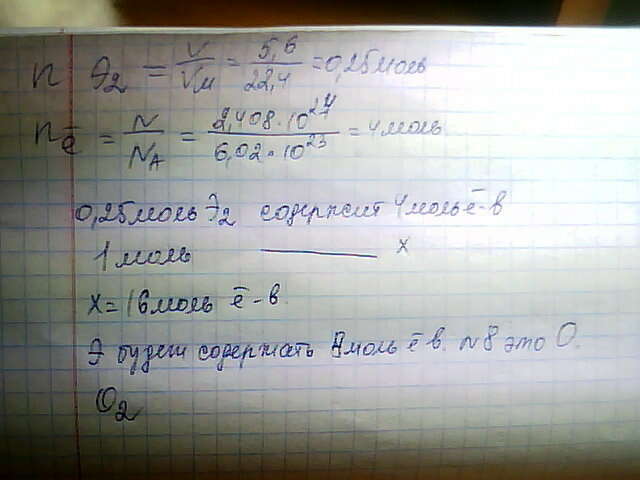 n Э₂ = V/Vм = 5,6/22,4 = 0,25моль
nē = N/NA = 2,408·10²⁴/6,02·10²³ = 4моль
0,25моль Э₂ содержит 4мольē-в
1моль ——— x
x=16моль ē-в.
Э будет содержать 8моль ē в. №8 это O.
O₂